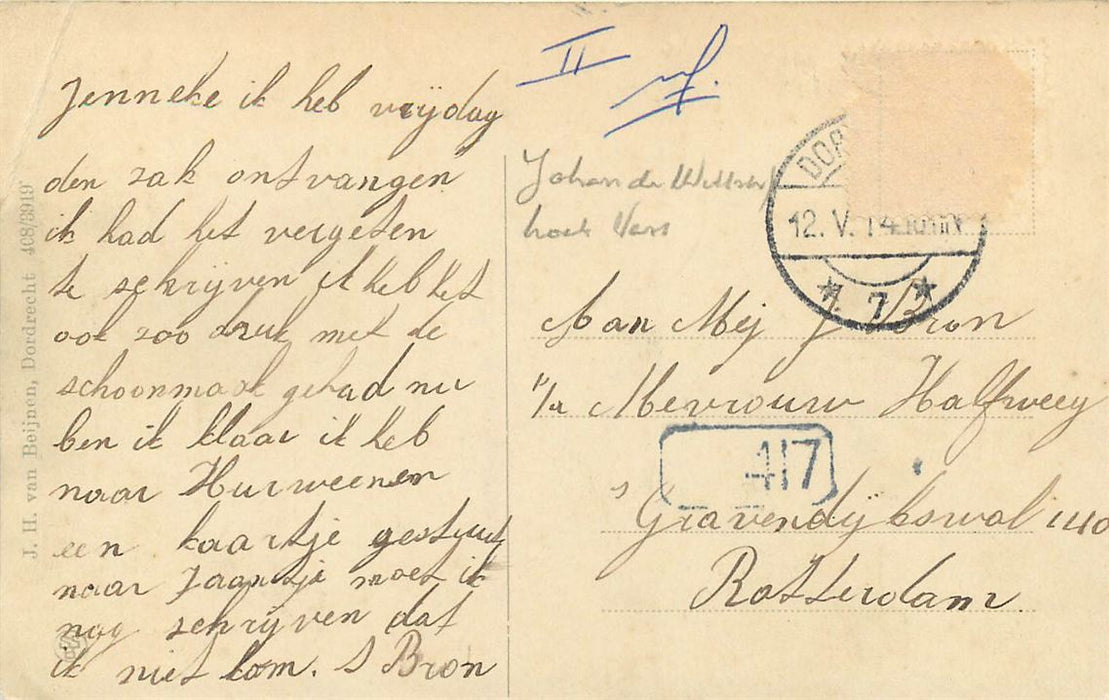 Jenneke ik heb vrijdag
den zak ontvangen
ik had het vergeten
te schrijven ik heb het
ook zoo druk met de
schoonmaak gehad nu
ben ik klaar ik heb
naar Hurweenen
een kaartje gestuurd
naar Jaantje moet ik
nog schrijven dat
ik niet kom. S Bron
J. H. van Beijnen, Dordrecht 408/3919
II
Johan de
hoek
DOR
12. V. 14
7
Aan Mej J Bron
p/a Mevrouw Halfweeg
417
s Gravendijkswal 140
Rotterdam